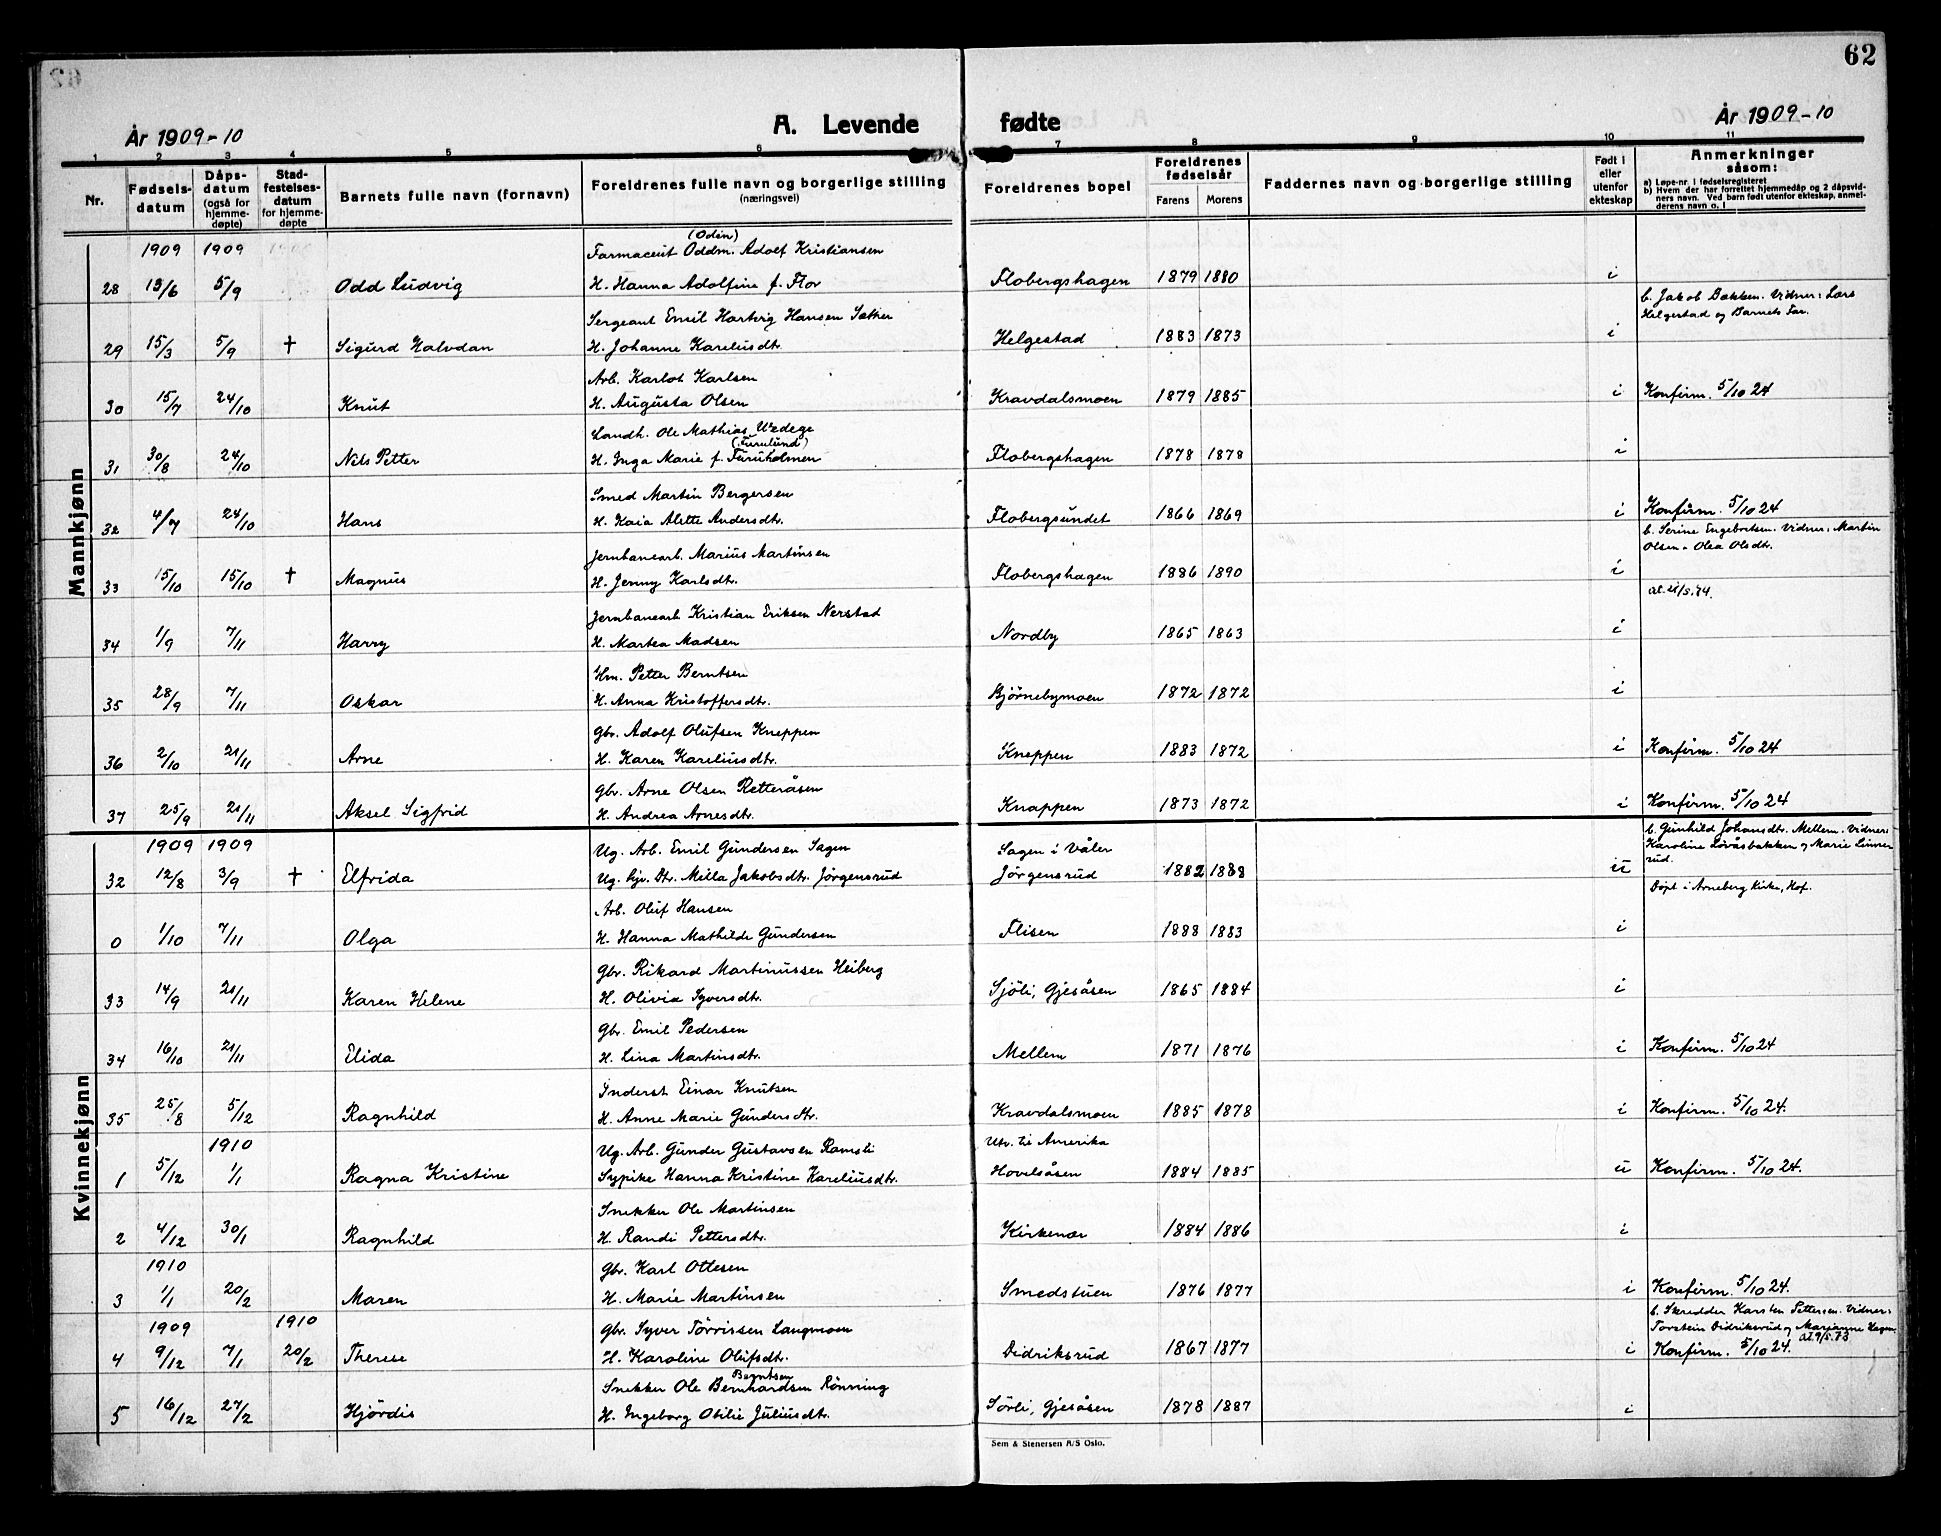 62
År 1909-10
A. Levende fødte
År 1909-10
1 2 3 4 5 6 7 8 9 10 11
Nr.
Fødselsdatum
Dåpsdatum (også for hjemmedøpte)
Stadfestelsesdatum for hjemmedøpte
Barnets fulle navn (fornavn)
Foreldrenes fulle navn og borgerlige stilling (næringsvei)
Foreldrenes bopel
Foreldrenes fødselsår
Farens Morens
Faddernes navn og borgerlige stilling
Født i eller utenfor ekteskap
Anmerkninger såsom:
a) Løpe-nr. i fødselsregisteret
b) Hvem der har forrettet hjemmedåp og 2 dåpsvidners navn. Ved barn født utenfor ekteskap, anmelderens navn o. l
Mannkjønn
1909 1909
(Odin)
Farmaceut Oddm. Adolf Kristiansen
28 13/6 5/9 Odd Ludvig H. Hanna Adolfine f. Flor Flobergshagen 1879 1880 i
Sergeant Emil Hartvig Hansen Sæther b. Jakob Bakken. Vidner: Lars
Helgestad og Barnets Far.
29 15/3 5/9 † Sigurd Halvdan H. Johanne Kareliusdtr. Helgestad 1883 1873 i
Arb. Karlot Karlsen
30 15/7 24/10 Knut H. Augusta Olsen Kravdalsmoen 1879 1885 i Konfirm. 5/10 24
Landh. Ole Mathias Uædege
(Furulund)
31 30/8 24/10 Nils Petter H. Inga Marie f. Furuholmen Flobergshagen 1878 1878 i
Smed Martin Bergersen
32 4/7 24/10 Hans H. Kaia Alette Andersdtr. Flobergsundet 1866 1869 i Konfirm. 5/10 24
b. Serine Engebretsen. Vidner: Martin
Jernbanearb. Marius Martinsen Olsen - Olea Olsdtr.
33 15/10 15/10 † Magnus H. Jenny Karlsdtr. Flobergshagen 1886 1890 i
Jernbanearb Kristian Eriksen Nerstad
34 1/9 7/11 Harry H. Martea Madsen Nordby 1865 1863 i
Hm. Petter Berntsen
35 28/9 7/11 Oskar H. Anna Kristoffersdtr. Bjørnebymoen 1872 1872 i
Gbr. Adolf Olufsen Kneppen
36 2/10 21/11 Arne H. Karen Kareliusdtr. Kneppen 1883 1872 i Konfirm. 5/10 24
Gbr. Arne Olsen Retteråsen
37 25/9 21/11 Aksel Sigfrid H. Andrea Arnesdtr. Knappen 1873 1872 i Konfirm. 5/10 24
Kvinnekjønn
1909 1909 Ug. Arb. Emil Gundersen Sagen Sagen i Våler b. Gunhild Johansdtr. Mellem. Vidner:
Karoline Løvåsbakken og Marie Linnerud.
32 12/8 3/9 † Elfrida Ug. hjv. Dtr. Milla Jakobsdtr. Jörgensrud Jörgensrud 1882 1888 u
Arb. Oluf Hansen Døpt i Arneberg Kirke, Hof.
0 1/10 7/11 Olga H. Hanna Mathilde Gundersen Flisen 1888 1883 i
Gbr. Rikard Martinussen Heiberg
33 14/9 21/11 Karen Helene H. Olivia Syversdtr. Sjöli, Gjesåsen 1865 1884 i
Gbr. Emil Pedersen
34 16/10 21/11 Elida H. Lina Martinsdtr. Mellem 1871 1876 i Konfirm. 5/10 24
Inderst Einar Knutsen
35 25/8 5/12 Ragnhild H. Anne Marie Gundersdtr. Kravdalsmoen 1885 1878 i Konfirm. 5/10 24.
1910 Ug. Arb. Gunder Gustavsen Ramsli Utv. til Amerika
1 5/12 1/1 Ragna Kristine Sypike Hanna Kristine Kareliusdtr. Hovelsåsen 1884 1885 u Konfirm. 5/10 24.
Snekker Ole Martinsen
2 4/12 30/1 Ragnhild H. Randi Pettersdtr. Kirkenær 1884 1886 i
1910 Gbr. Karl Ottesen
3 1/1 20/2 Maren H. Marie Martinsen Smedstuen 1876 1877 i Konfirm. 5/10 24.
b. Skredder Karsten Pettersen. Vidner:
1909 1910 Gbr. Syver Törrissen Langmoen Torstein Didriksrud og Marianne Hagen.
At. 9/5.73
4 9/12 7/1 20/2 Therese H. Karoline Olufsdtr. Didriksrud 1867 1877 i Konfirm. 5/10 24.
Berntsen
Snekker Ole Bernhardsen Rönning
5 16/12 27/2 Hjördis H. Ingeborg Otilie Juliusdtr. Sörli, Gjesåsen 1878 1887 i
Sem & Stenersen A/S Oslo.